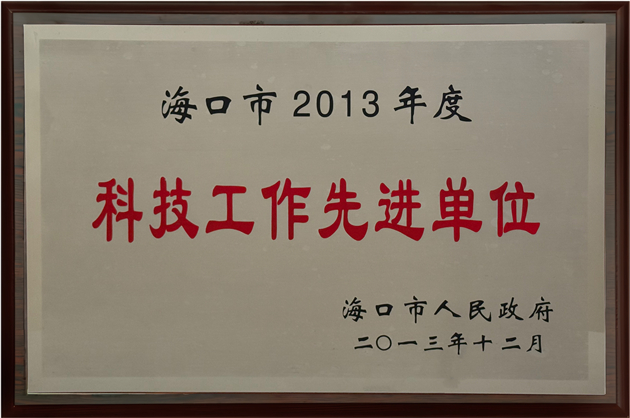 海口市2013年度
科技工作先进单位
海口市人民政府
二〇一三年十二月